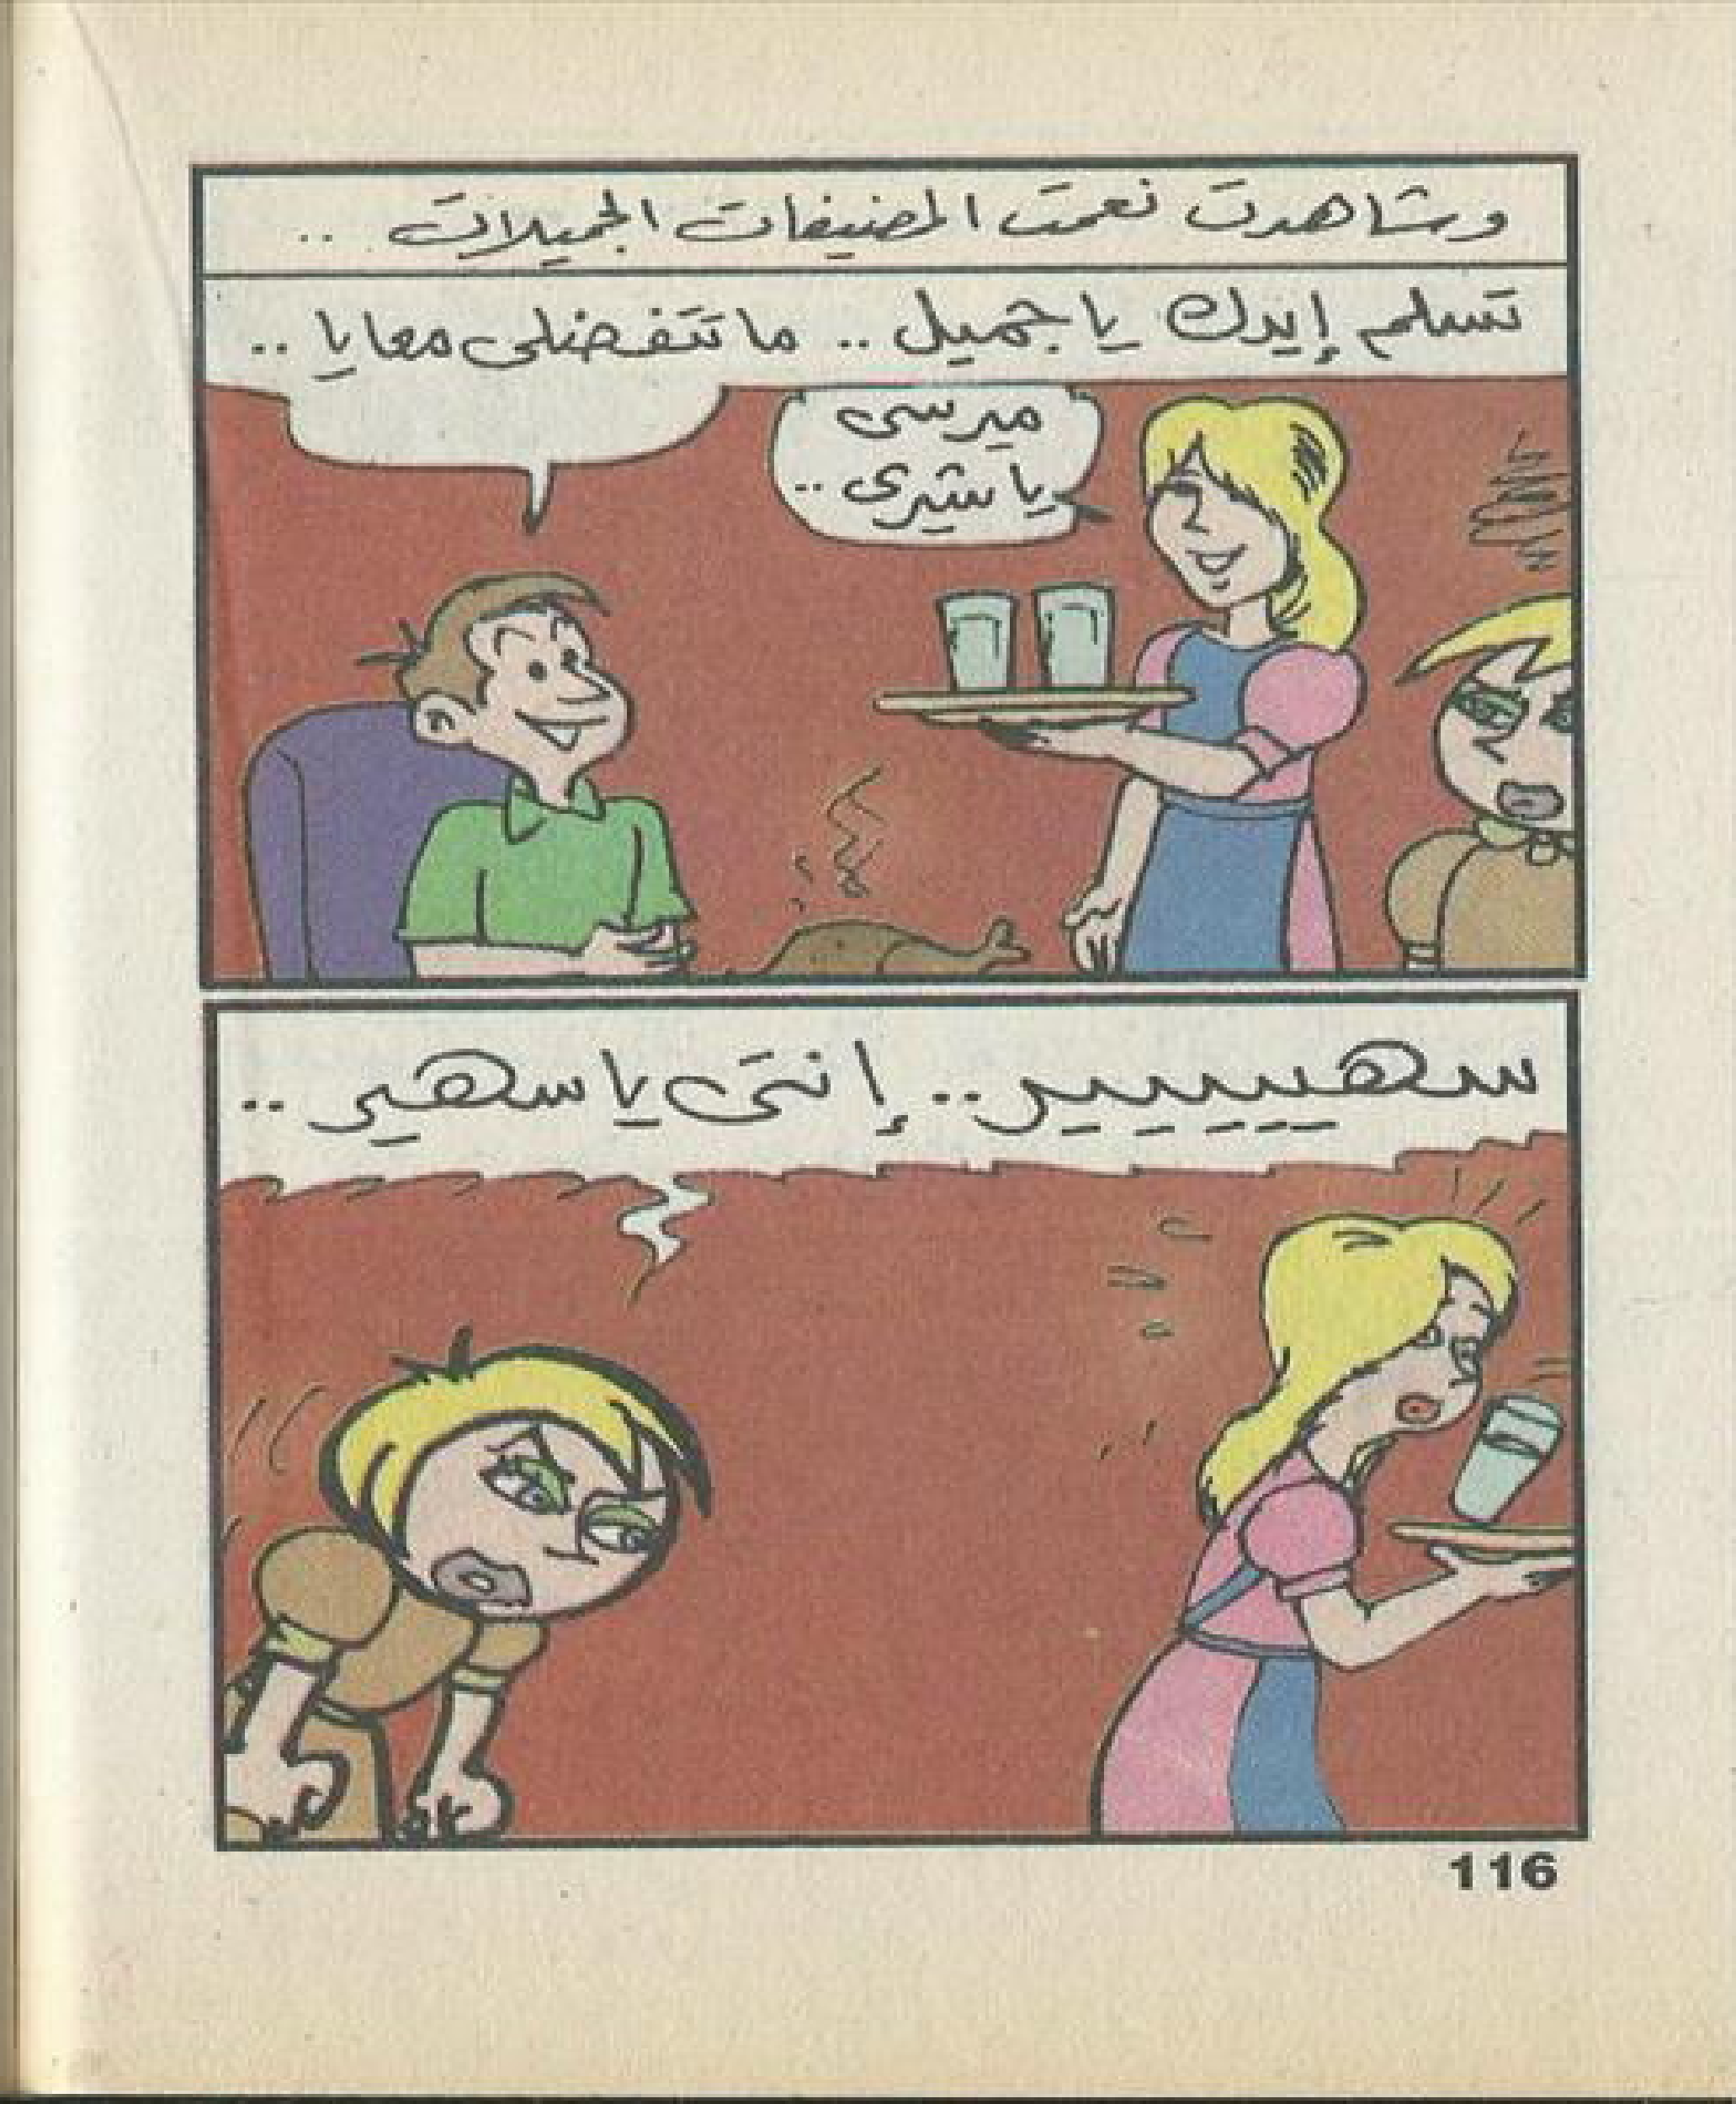 وشاهدت نعمت المضيفات الجميلات ..
تسلم إيدك يا جميل .. ما تتفضلى معايا ..
ميرسى
يا شيرى ..
سهيييير .. إنتى يا سهير ..
116